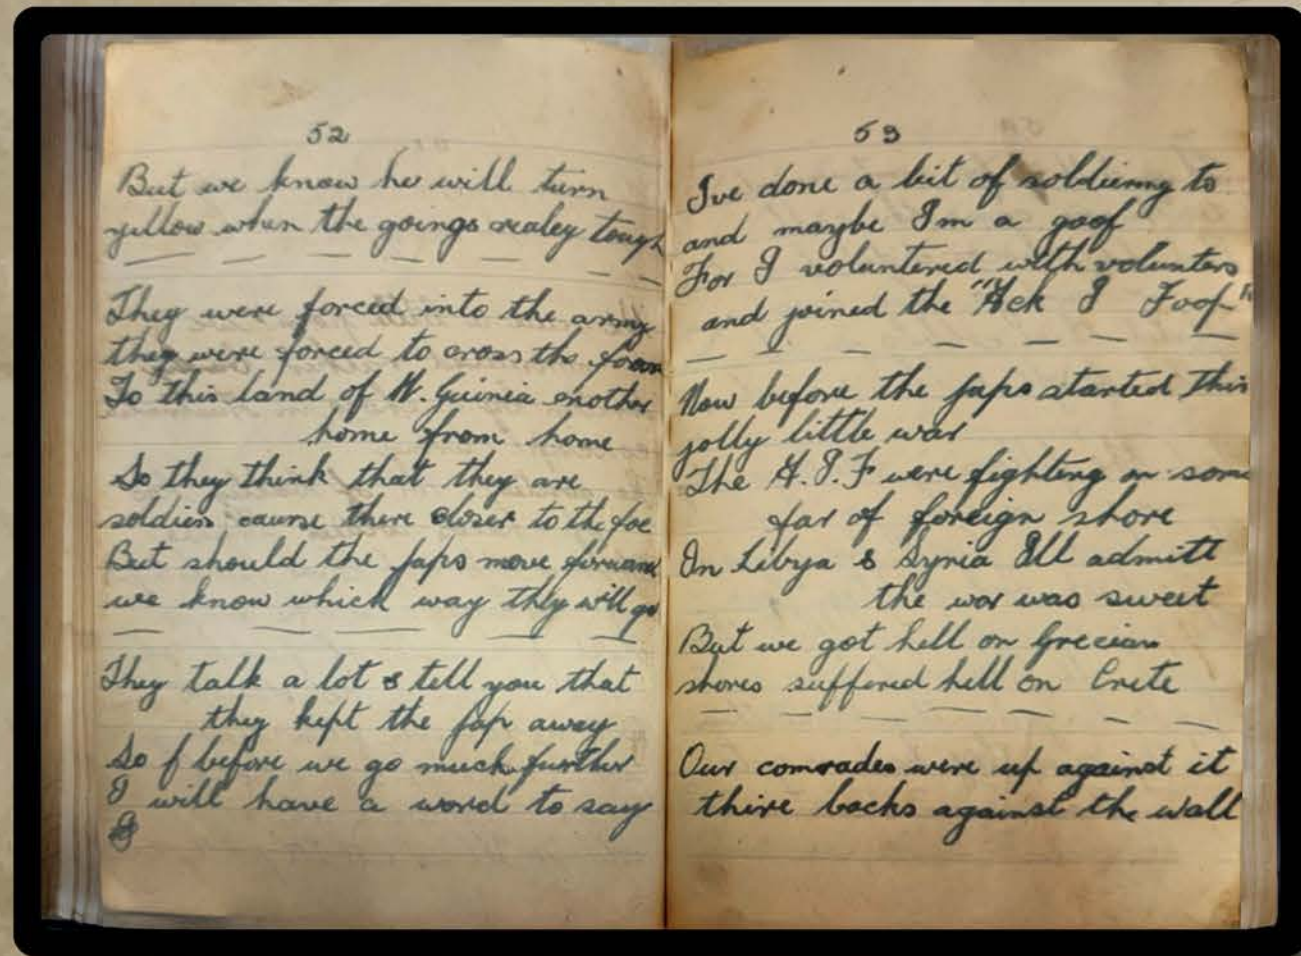 52
But we know he will turn
yellow when the goings realey tough
They were forced into the army
they were forced to cross the foam
To this land of N. Guinia enother
home from home
So they think that they are
soldiers caurse there closer to the foe
But should the Japs move forward
we know which way they will go
They talk a lot & tell you that
they kept the Jap away
So f before we go much further
I will have a word to say
53
Ive done a bit of soldiering to
and maybe Im a goof
For I voluntered with volunters
and joined the "Ack I Foof"
Now before the Japs started this
jolly little war
The A.I.F were fighting on some
far of foreign shore
In Libya & Syria Ill admitt
the war was sweet
But we got hell on Grecian
shores suffered hell on Crete
Our comrades were up against it
thire backs against the wall